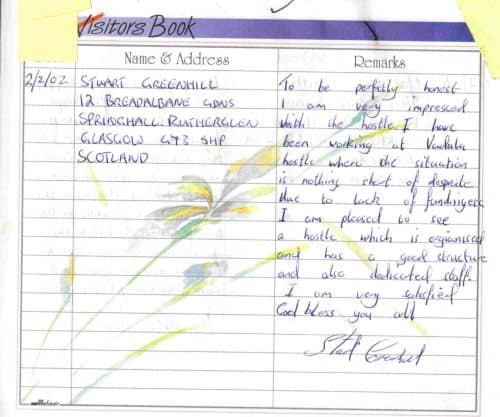 Visitors Book
Name & Address
Remarks
2/2/02
STUART GREENHILL
12 BREADALBANE GDNS
SPRINGHALL RUTHERGLEN
GLASGOW G73 5HP
SCOTLAND
To be perfectly honest
I am very impressed
with the hostle. I have
been working at
hostles where the situation
is nothing short of
due to lack of funding etc
I am pleased to see
a hostle which is organised
and has a good structure
and also dedicated staff.
I am very satisfied
God bless you all